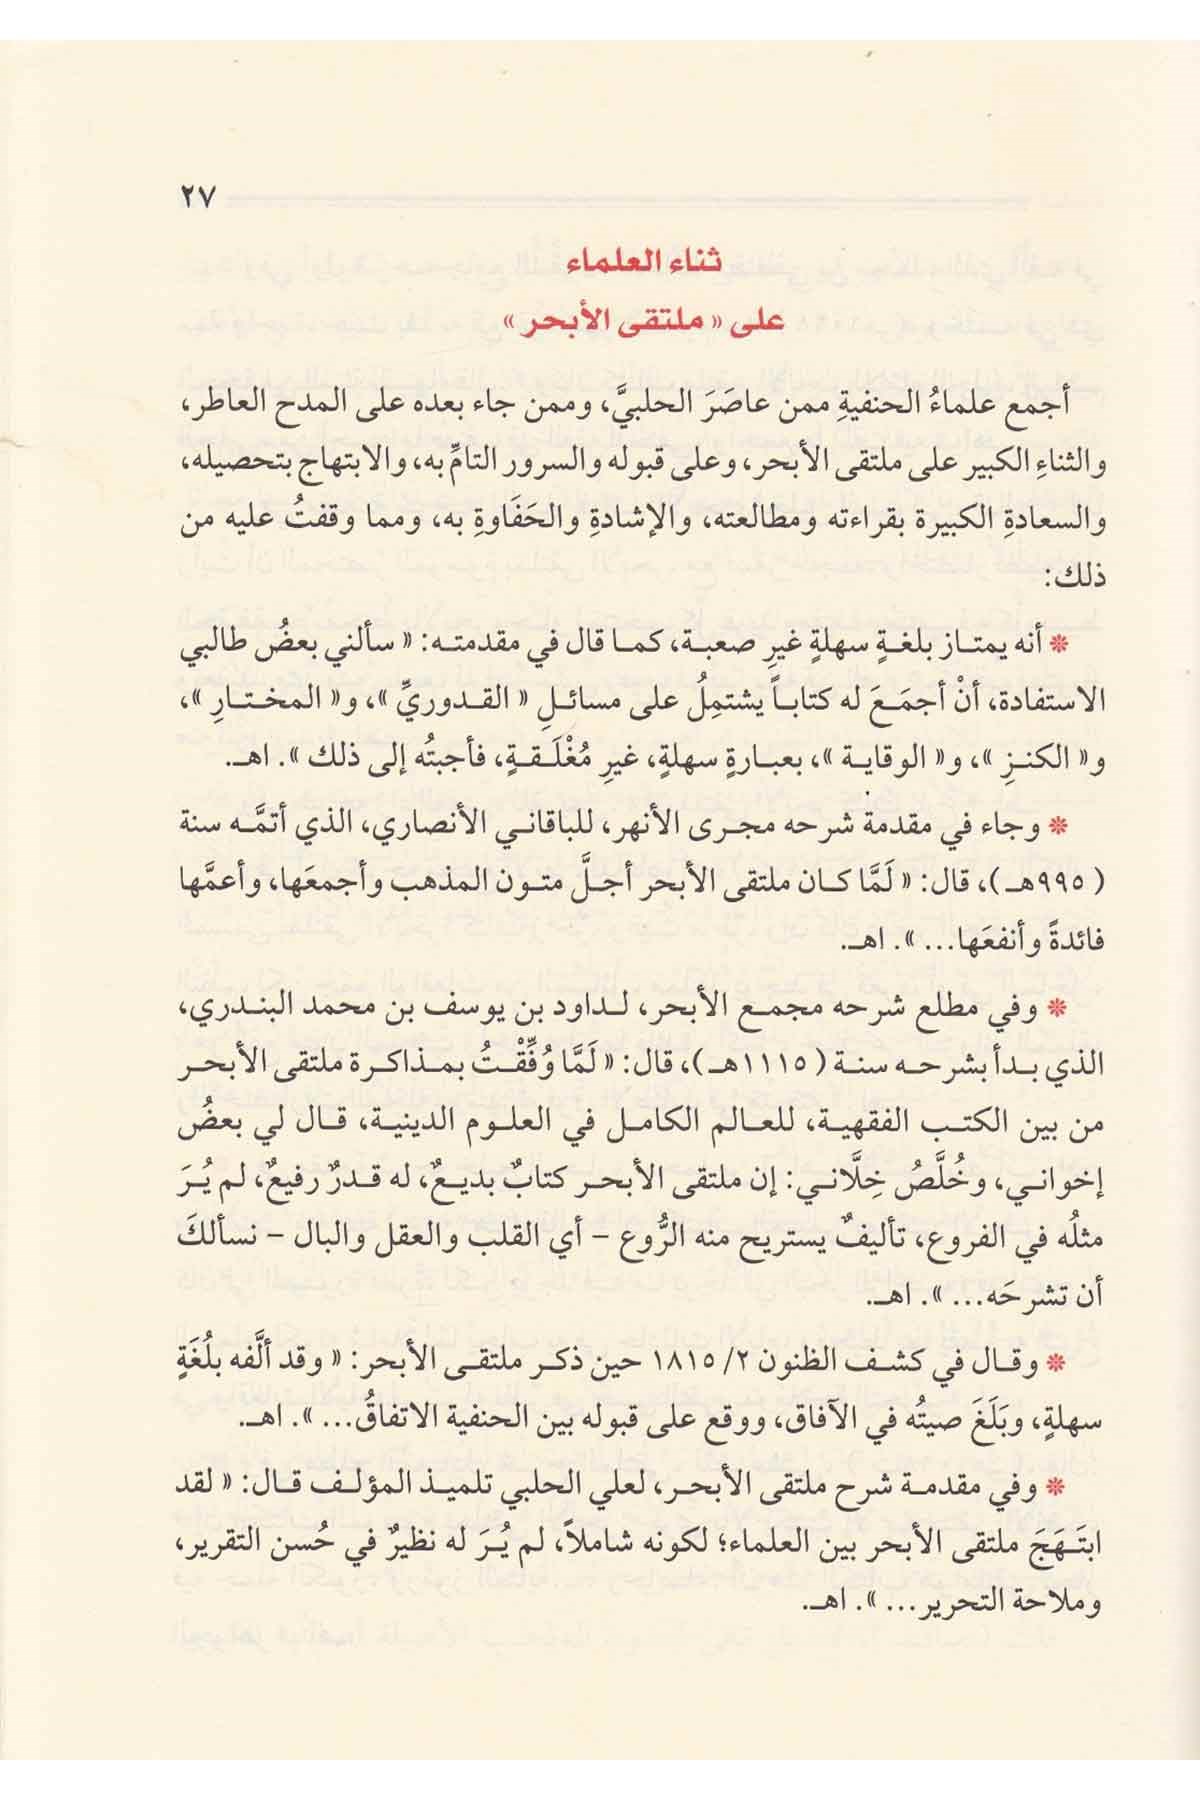 ٢٧
ثناء العلماء
على « ملتقى الأبحر »
أجمع علماءُ الحنفيةِ ممن عاصَرَ الحلبيَّ، وممن جاء بعده على المدح العاطر،
والثناءِ الكبير على ملتقى الأبحر، وعلى قبوله والسرور التامِّ به، والابتهاج بتحصيله،
والسعادةِ الكبيرة بقراءته ومطالعته، والإشادةِ والحَفَاوةِ به، ومما وقفتُ عليه من
ذلك:
* أنه يمتاز بلغةٍ سهلةٍ غيرِ صعبة، كما قال في مقدمته: « سألني بعضُ طالبي
الاستفادة، أنْ أجمَعَ له كتاباً يشتمِلُ على مسائلِ « القدوريِّ »، و« المختارِ »،
و« الكنزِ »، و« الوقاية »، بعبارةٍ سهلة، غيرِ مُغْلَقةٍ، فأجبتُه إلى ذلك ». اهـ.
* وجاء في مقدمة شرحه مجرى الأنهر، للباقاني الأنصاري، الذي أتمَّه سنة
( ٩٩٥هـ )، قال: « لَمَّا كان ملتقى الأبحر أجلَّ متون المذهب وأجمعَها، وأعمَّها
فائدةً وأنفعَها... ». اهـ.
* وفي مطلع شرحه مجمع الأبحر، لداود بن يوسف بن محمد البندري،
الذي بدأ بشرحه سنة ( ١١١٥هـ )، قال: « لَمَّا وُفِّقْتُ بمذاكرة ملتقى الأبحر
من بين الكتب الفقهية، للعالم الكامل في العلوم الدينية، قال لي بعضُ
إخواني، وخُلَّصُ خِلَّاني: إن ملتقى الأبحر كتابٌ بديعٌ، له قدرٌ رفيعٌ، لم يُرَ
مثلُه في الفروع، تأليفٌ يستريح منه الرُّوع – أي القلب والعقل والبال – نسألكَ
أن تشرحَه... ». اهـ.
* وقال في كشف الظنون ٢/ ١٨١٥ حين ذكر ملتقى الأبحر: « وقد ألَّفه بلُغَةٍ
سهلةٍ، وبَلَغَ صيتُه في الآفاق، ووقع على قبوله بين الحنفية الاتفاقُ... ». اهـ.
* وفي مقدمة شرح ملتقى الأبحر، لعلي الحلبي تلميذ المؤلف قال: « لقد
ابتَهَجَ ملتقى الأبحر بين العلماء؛ لكونه شاملاً، لم يُرَ له نظيرٌ في حُسن التقرير،
وملاحة التحرير... ». اهـ.